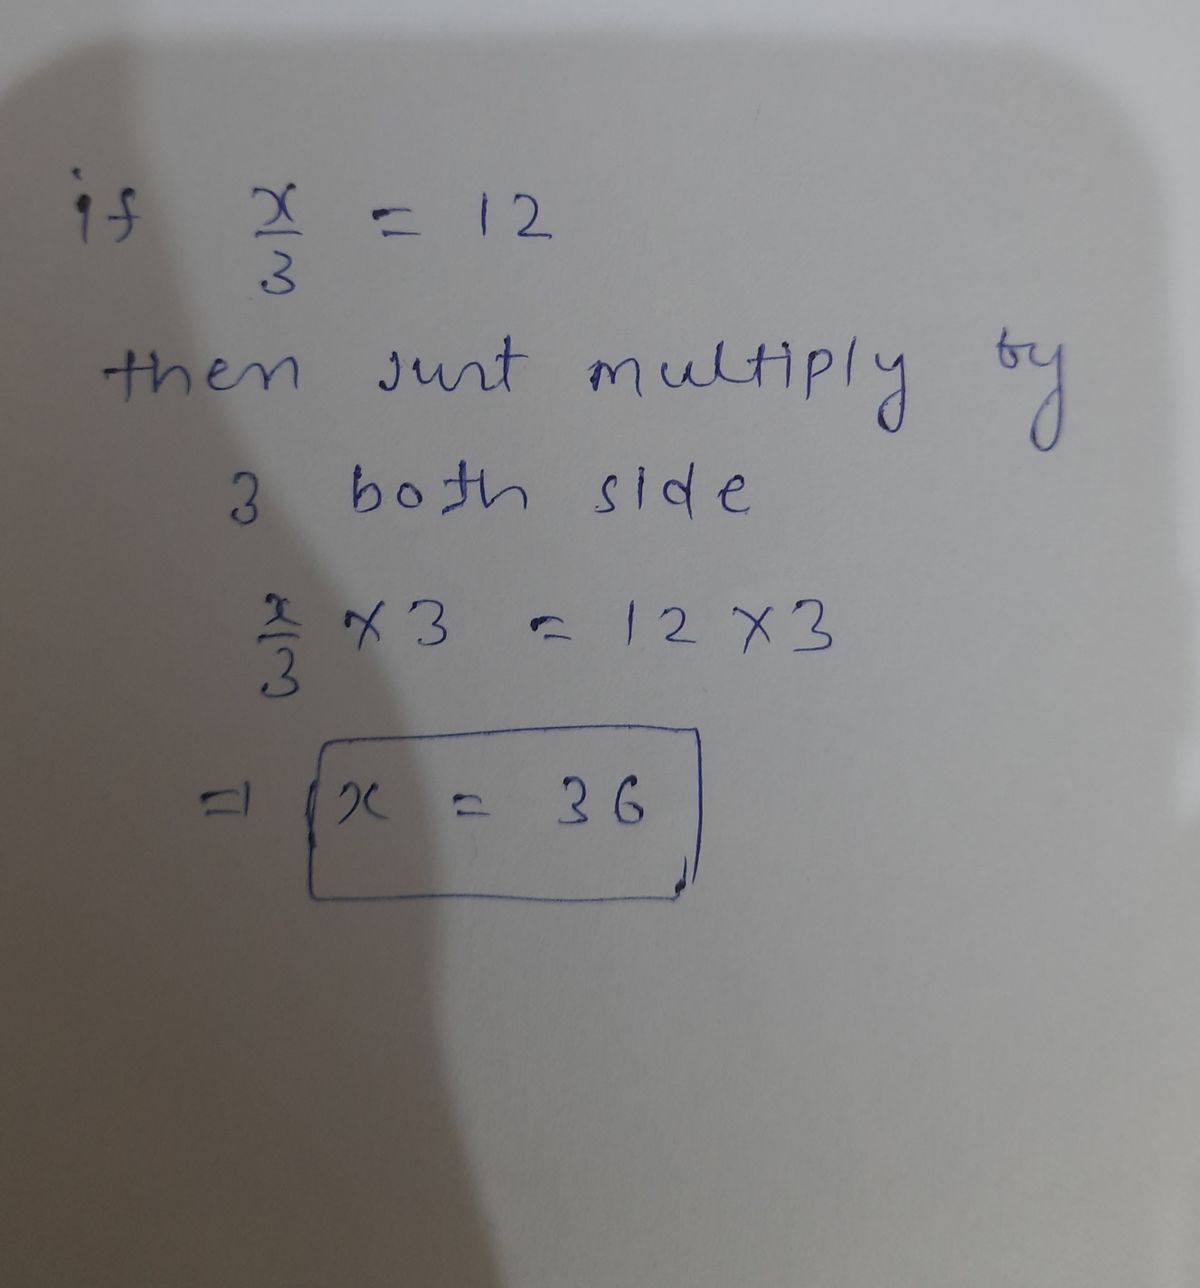 if x/3 = 12
then just multiply by
3 both side
x/3 × 3 = 12 × 3
⇒ x = 36